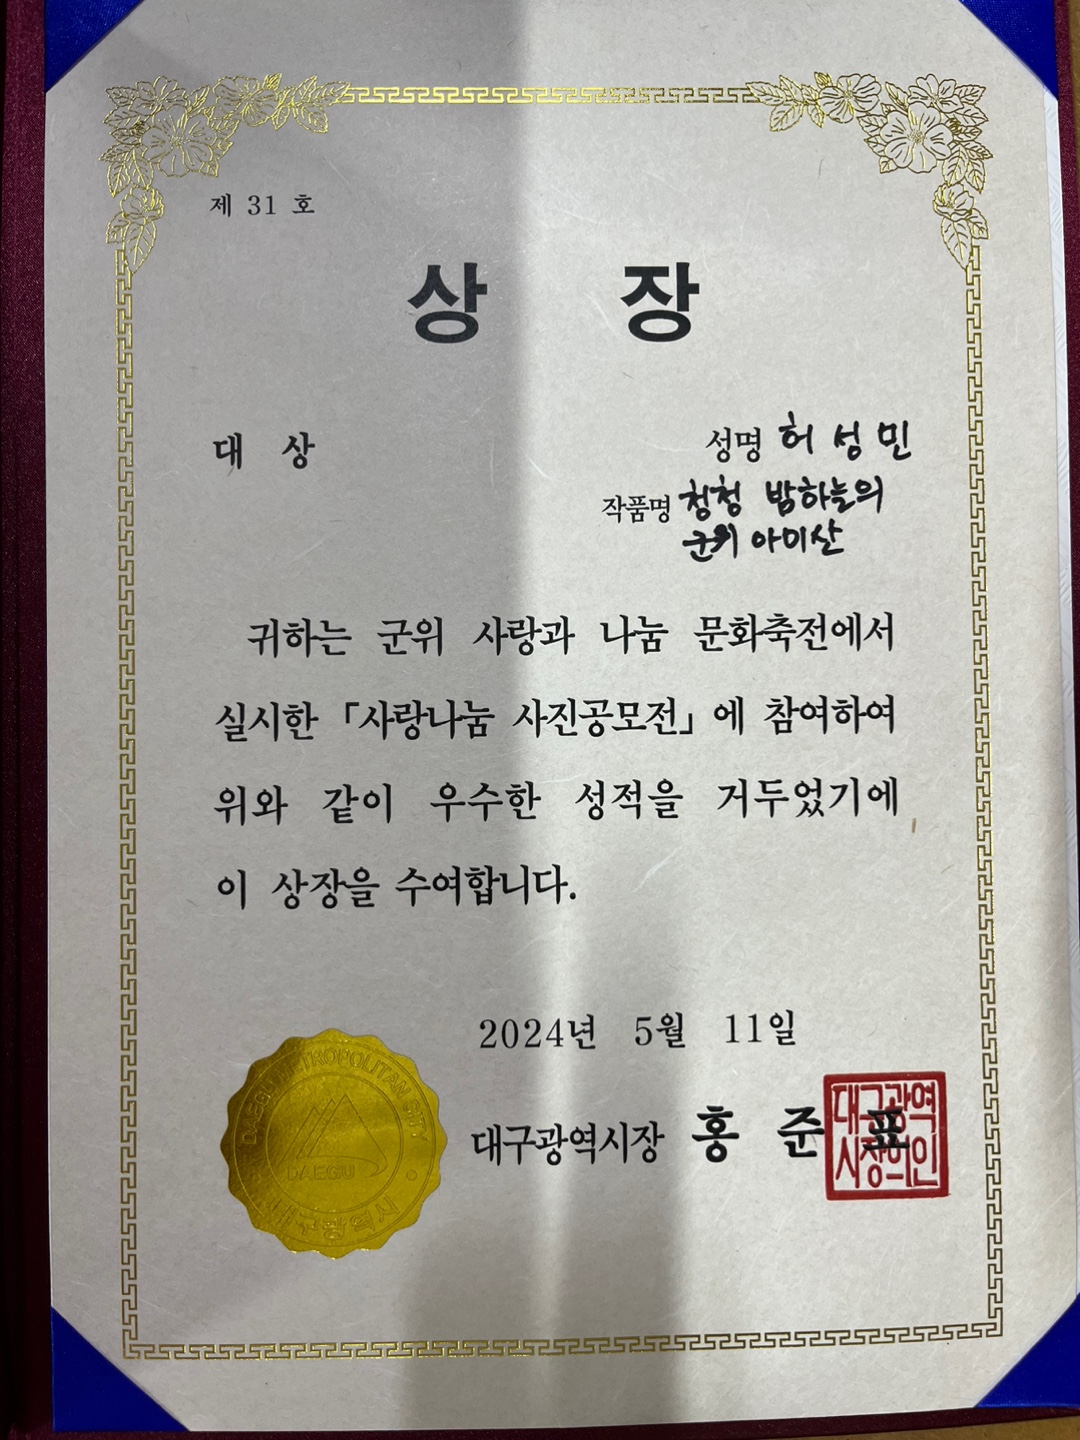 제 31 호
상 장
대 상
성명 허성민
작품명 청청 밤하늘의
군위 아미산
귀하는 군위 사랑과 나눔 문화축전에서
실시한 「사랑나눔 사진공모전」에 참여하여
위와 같이 우수한 성적을 거두었기에
이 상장을 수여합니다.
2024년 5월 11일
대구광역시장 홍준표
대구광역
시장의인
DAEGU METROPOLITAN CITY
DAEGU
대구광역시